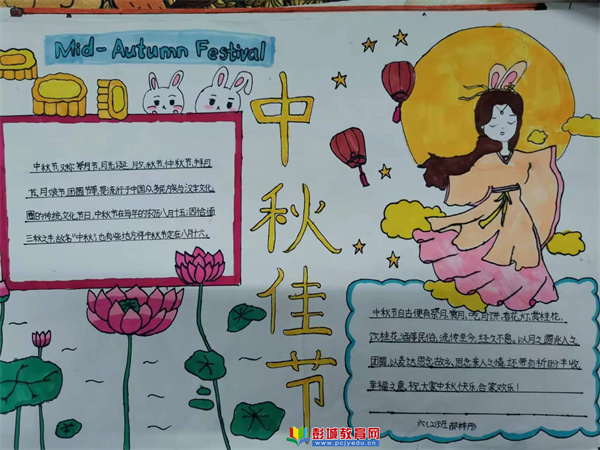 Mid-Autumn Festival
中秋佳节
中秋节,又称祭月节、月光诞、月夕、秋节、仲秋节、拜月
节、月娘节、团圆节等,是流行于中国众多民族与汉字文化
圈的传统文化节日,中秋节在每年的农历八月十五;因恰值
三秋之半,故名“中秋”,也有些地方将中秋节定在八月十六。
中秋节自古便有祭月、赏月、吃月饼、看花灯、赏桂花、
饮桂花酒等民俗,流传至今,经久不息。以月之圆兆人之
团圆,以表达思念故乡,思念亲人之情,还带着祈盼丰收、
幸福之意,祝大家中秋快乐,合家欢乐!
六(2)班
彭城教育网
www.pcjyedu.cn